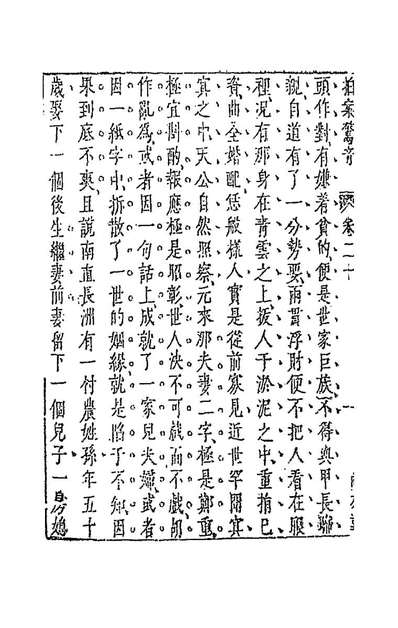 拍案驚奇 卷二十 一
頭作對有嫌着貧的便是世家巨族不得與甲長聯
親自道有了一分勢要兩貫浮財便不把人看在眼
裡况有那身在青雲之上拔人于淤泥之中重捐己
資曲全婚配恁般樣人實是從前寡見近世罕聞冥
冥之中天公自然照察元來那夫妻二字極是鄭重
極宜斟酌報應極是昭彰世人决不可戲而不戲胡
作亂為或者因一句話上成就了一家兒夫婦或者
因一紙字中拆散了一世的姻緣就是陷于不知因
果到底不爽且說南直長洲有一村農姓孫年五十
歲娶下一個後生繼妻前妻留下一個兒子一房媳